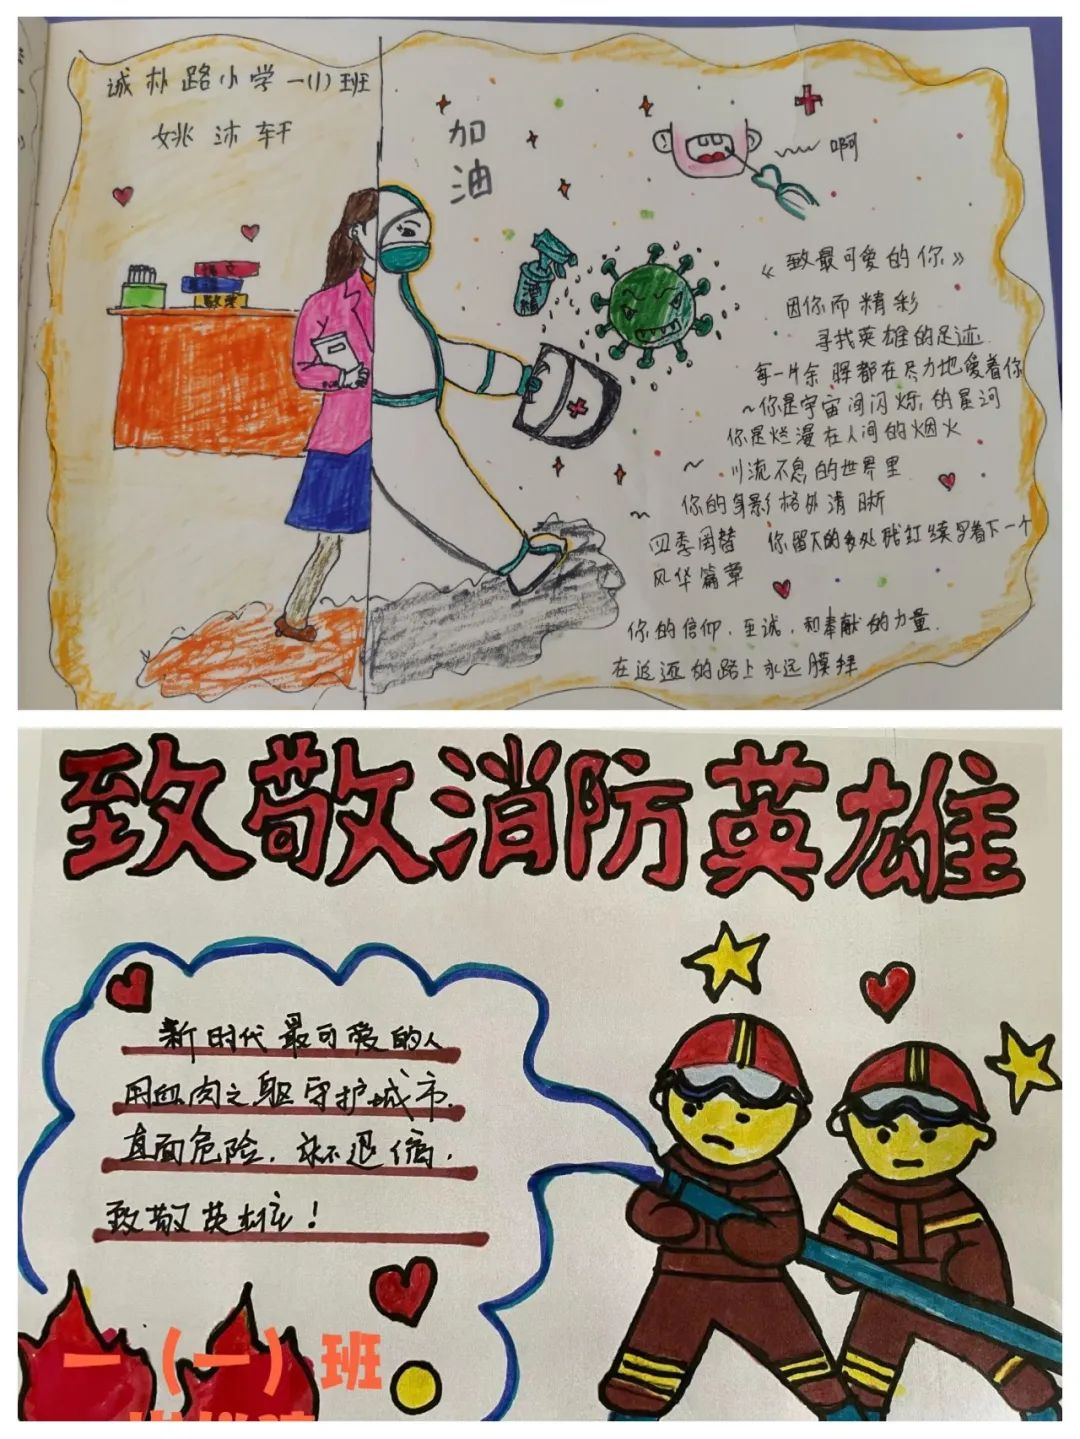 诚朴路小学一(1)班
姚沐轩
加油
啊
语文
数学
酒精
《致最可爱的你》
因你而精彩
寻找英雄的足迹
每一片余晖都在尽力地爱着你
~你是宇宙间闪烁的星河
你是烂漫在人间的烟火
~川流不息的世界里
~你的身影格外清晰
四季周替 你留下的多处
风华篇章
你的信仰,至诚,和奉献的力量.
在追逐的路上永远膜拜
致敬消防英雄
新时代最可爱的人
用血肉之躯守护城市.
直面危险.永不退缩.
致敬英雄!
一(一)班